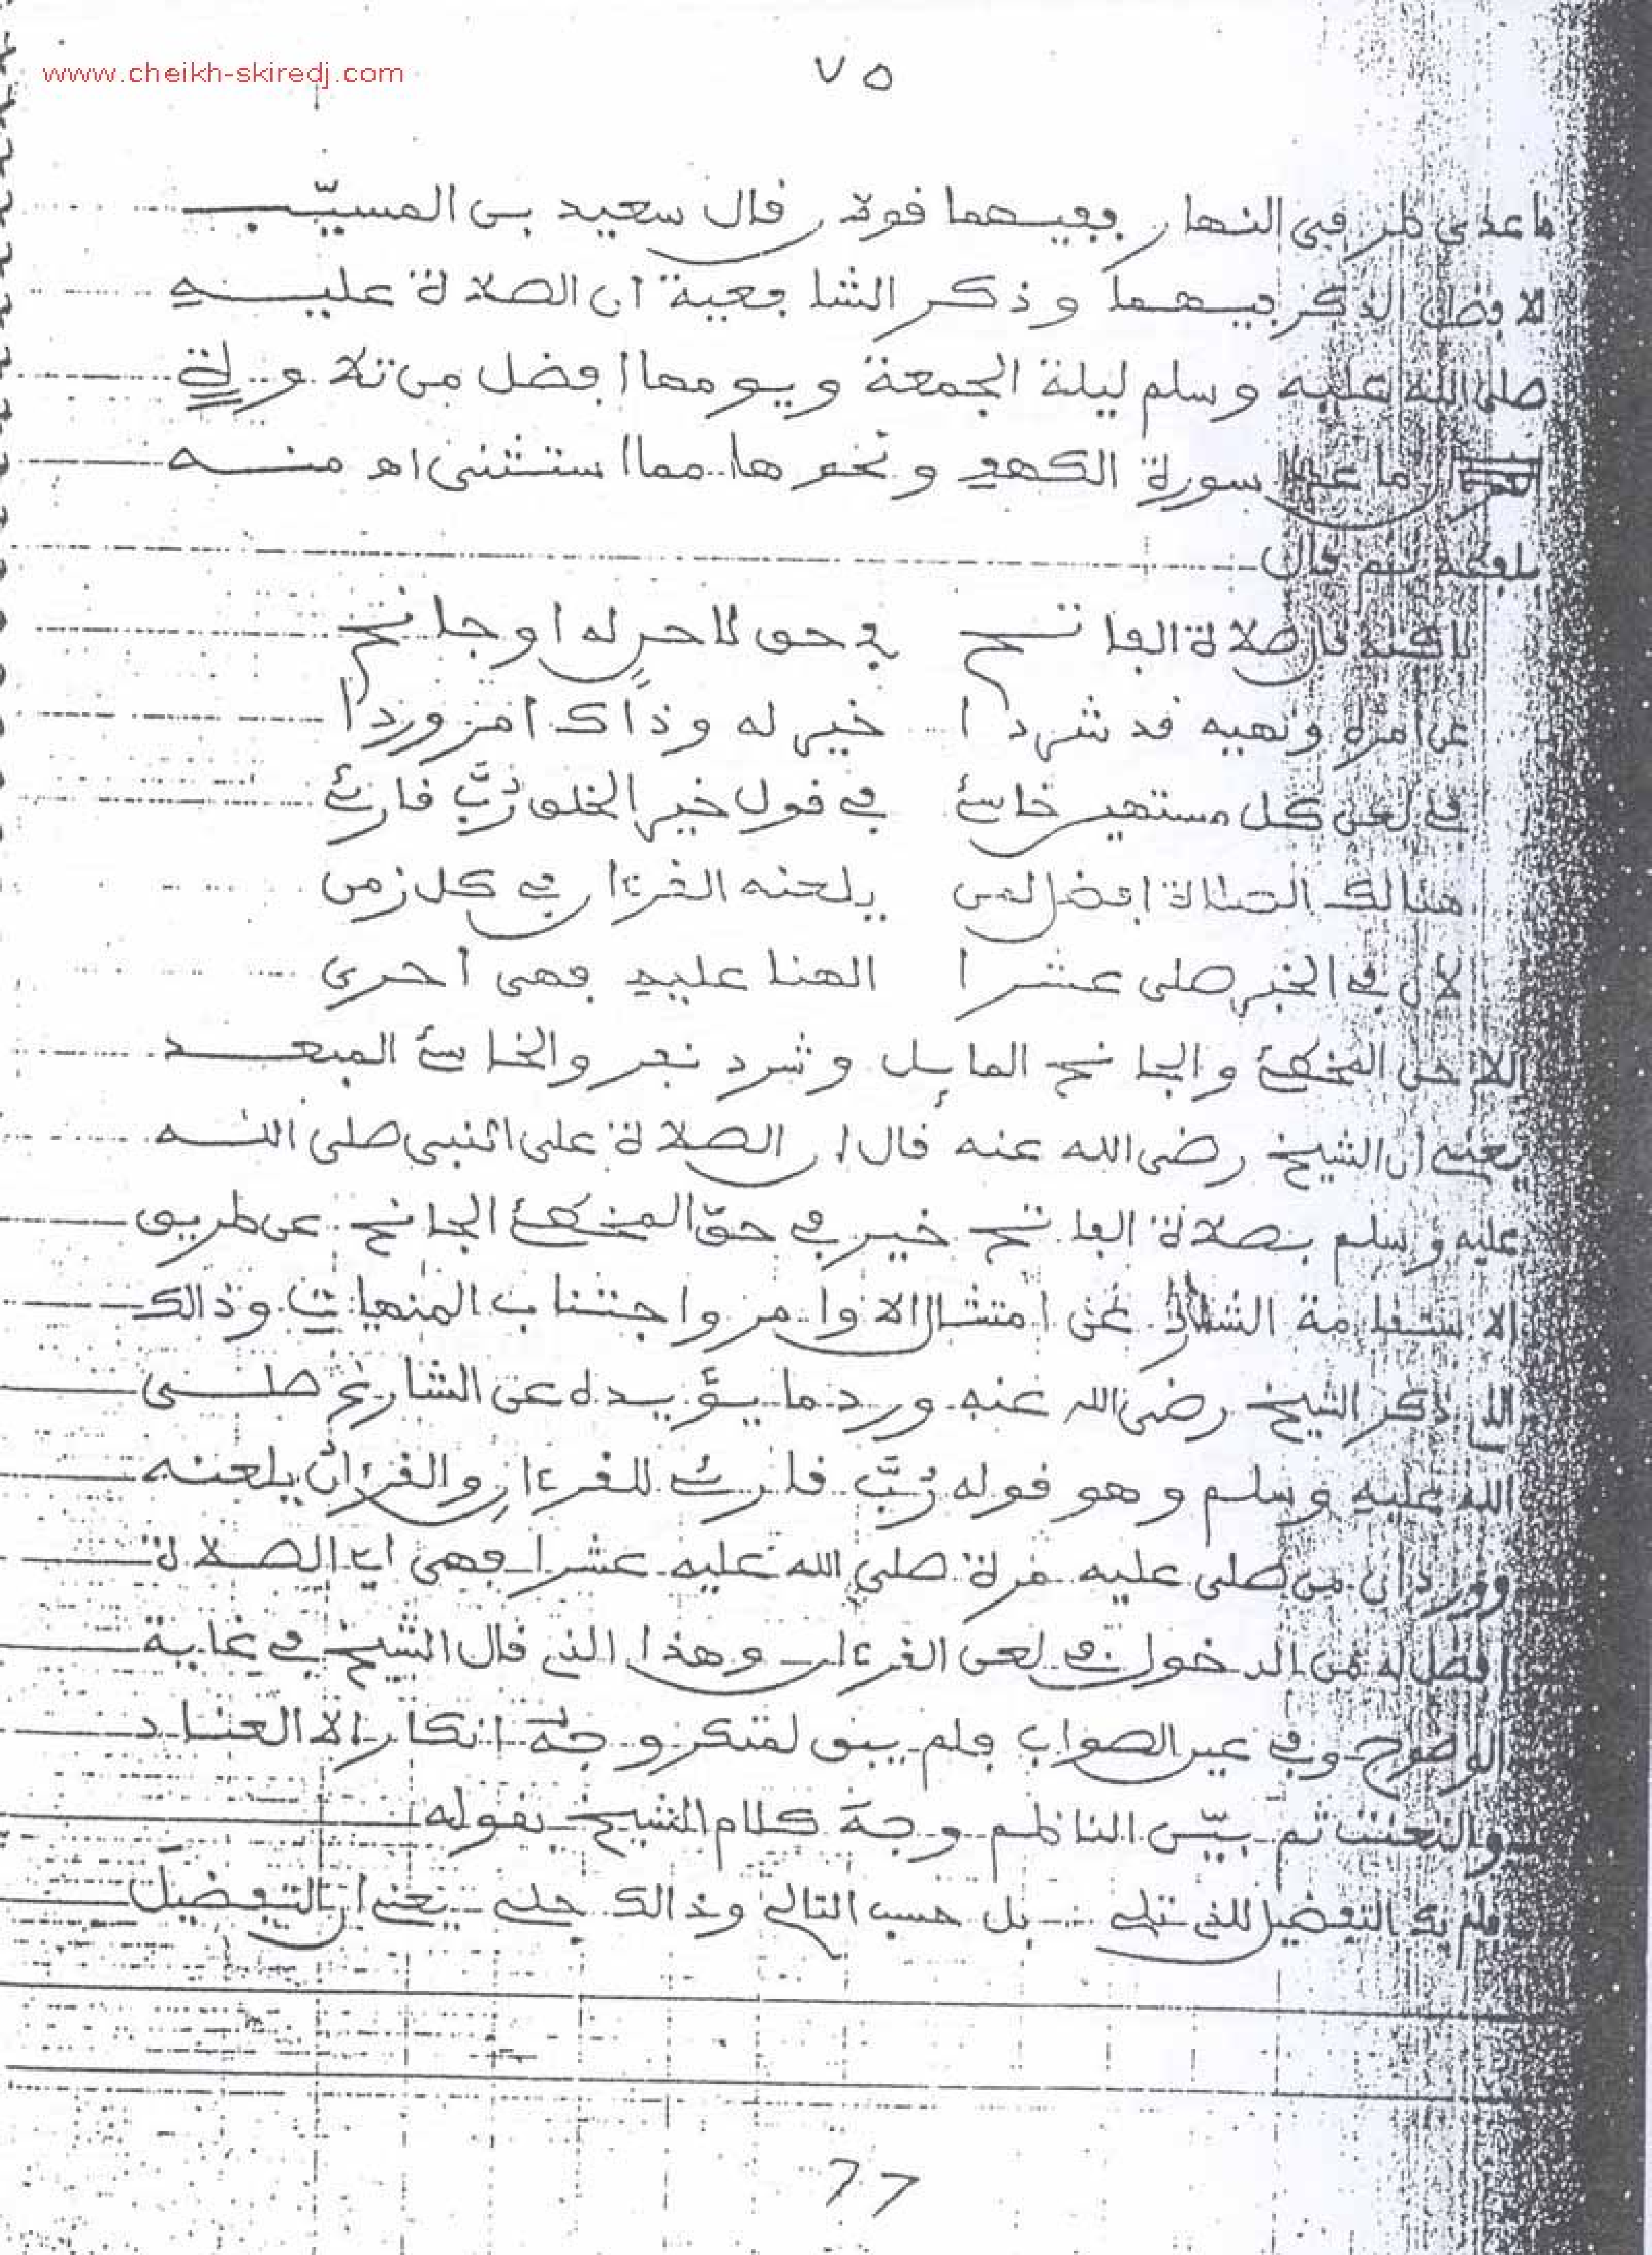 www.cheikh-skiredj.com
٧٥
ما عدى طرفي النهار ففيهما قولان قال سعيد بن المسيّب
الافضل الذكر فيهما وذكر الشافعية ان الصلاة عليه
صلى الله عليه وسلم ليلة الجمعة ويومها افضل من تلاوة
القرءان ما عدا سورة الكهف ونحوها مما استثنى اه منه
بلفظه ثم قال
لاكنه قال صلاة الفاتح في حق للاحن له او جانح
عن امره ونهيه قد شردا خير له وذاك امر وردا
في لعن كل مستهين خاسئ في قول خير الخلق رُبَّ قارئ
هنالك الصلاة افضل لمن يلعنه القرءان في كل زمن
لان في الخبر صلى عشرا الهنا عليه فهى احرى
اللاحن المخطئ والجانح المايل وشرد نفر والخاسئ المبعد
يعنى ان الشيخ رضى الله عنه قال ان الصلاة على النبى صلى الله
عليه وسلم بصلاة الفاتح خير في حق المخطئ الجانح عن طريق
الاستقامة الشارد عن امتثال الاوامر واجتناب المنهيات وذالك
الذى ذكر الشيخ رضى الله عنه ورد ما يؤيده عن الشارع صلى
الله عليه وسلم وهو قوله رُبَّ قارئ للقرءان والقرءان يلعنه
وورد ان من صلى عليه مرة صلى الله عليه عشرا فهى اى الصلاة
افضل له من الدخول في لعن القرءان وهذا الذى قال الشيخ في غاية
الوضوح وفي عين الصواب فلم يبق لمنكر وجهُ انكار الا العناد
والتعنت ثم بيّن الناظم وجه كلام الشيخ بقوله
فلم يك التفضيل للذى تلى بل حسب التالى وذالك جلى يعنى ان التفضيل
77